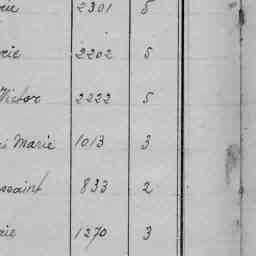 rie 2301 5
rie 2202 5
Victor 2222 5
Marie 1013 3
ssaint 833 2
rie 1270 3